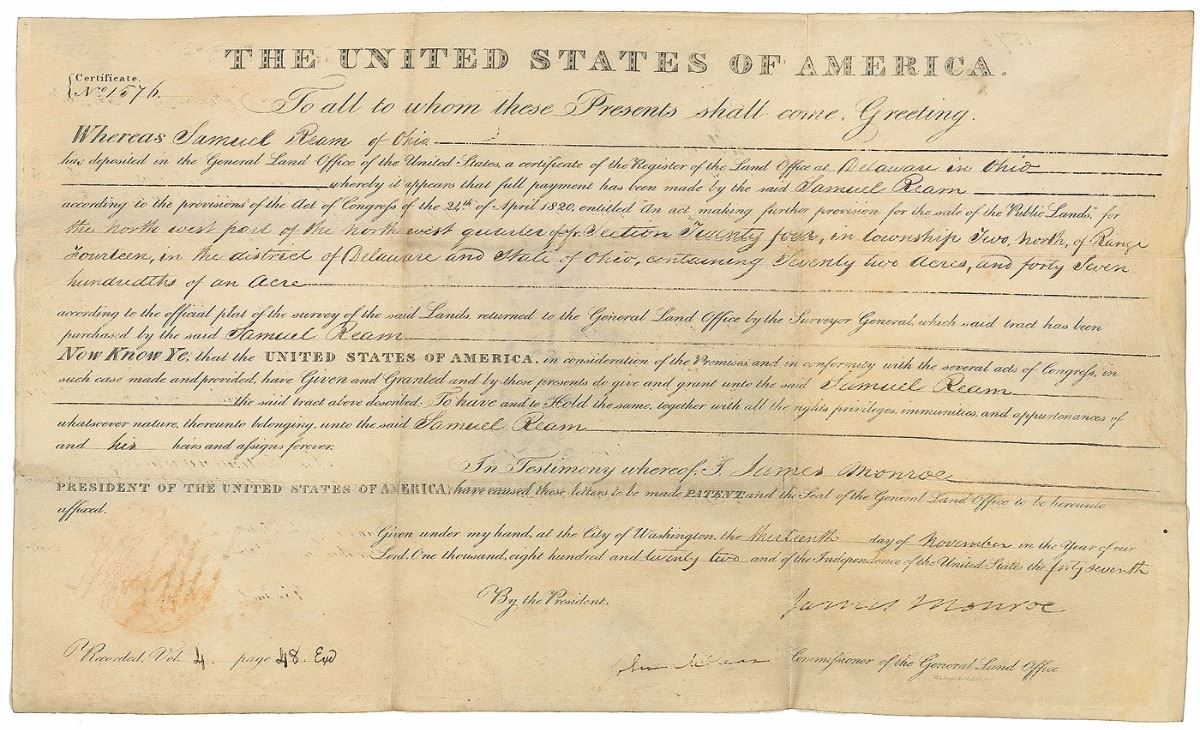 THE UNITED STATES OF AMERICA.
Certificate.
No. 1576
To all to whom these Presents shall come, Greeting.
Whereas Samuel Ream of Ohio
has deposited in the General Land Office of the United States, a certificate of the Register of the Land Office at Delaware in Ohio
whereby it appears that full payment has been made by the said Samuel Ream
according to the provisions of the Act of Congress of the 24th. of April 1820, entitled "An act making further provision for the sale of the Public Lands," for
the north west part of the north west quarter of Section Twenty four, in township Two, north, of Range
Fourteen, in the district of Delaware and State of Ohio, containing Seventy two Acres, and forty Seven
hundredths of an Acre
according to the official plat of the survey of the said Lands, returned to the General Land Office by the Surveyor General, which said tract has been
purchased by the said Samuel Ream
Now Know Ye, that the UNITED STATES OF AMERICA, in consideration of the Premises, and in conformity with the several acts of Congress, in
such case made and provided, have Given and Granted and by these presents do give and grant unto the said Samuel Ream
the said tract above described: To have and to Hold the same, together with all the rights, privileges, immunities, and appurtenances of
whatsoever nature, thereunto belonging, unto the said Samuel Ream
and his heirs and assigns forever.
In Testimony whereof, I, James Monroe
PRESIDENT OF THE UNITED STATES OF AMERICA, have caused these letters to be made PATENT, and the Seal of the General Land Office to be hereunto
affixed.
Given under my hand, at the City of Washington, the thirteenth day of November in the Year of our
Lord, One thousand, eight hundred and twenty two and of the Independence of the United State the forty seventh
By the President.
James Monroe
Commissioner of the General Land Office
Recorded, Vol. 4 page 48. Exd